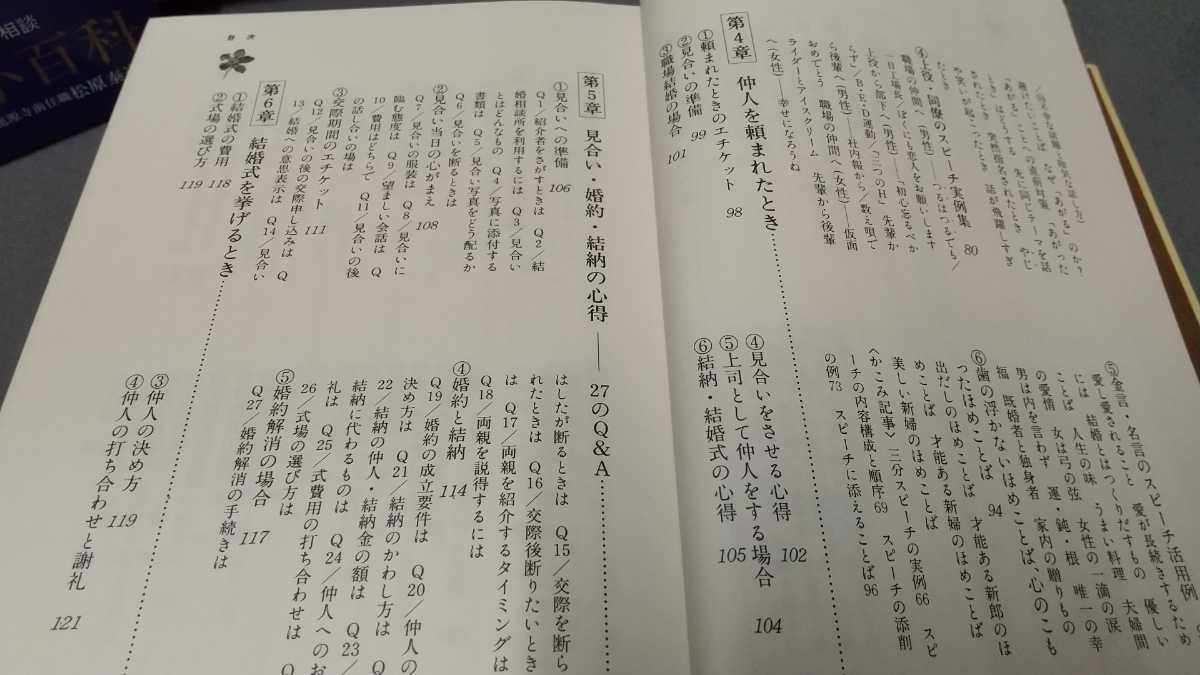 相談
小百科
松原
／
④上役・同僚のスピーチ実例集 80
職場の仲間へ（男性）――つるはつるでも／
一日工場長／ぼくにも恋人をお願いします
上役から部下へ（男性）――「初心忘るべか
らず」／B・E・D運動／「三つの日」 先輩か
ら後輩へ（男性）――社内報から／数え唄で
おめでとう 職場の仲間へ（女性）――仮面
ライダーとアイスクリーム 先輩から後輩
へ（女性）――幸せになろうね
⑤金言・名言のスピーチ活用例
愛し愛されること 愛が長続きするため
には 結婚とはつくりだすもの 優しい
ことば 人生の味 うまい料理 夫婦間
の愛情 女は弓の弦 女性の一滴の涙
男は内を言わず 運・鈍・根 唯一の幸
福 既婚者と独身者 家内の贈りもの
⑥歯の浮かないほめことば 心のこも
ったほめことば 94
才能ある新郎のほ
出だしのほめことば
めことば 才能ある新婦のほめことば
美しい新婦のほめことば
〈かこみ記事〉三分スピーチの実例66 スピ
ーチの内容構成と順序69 スピーチの添削
の例73 スピーチに添えることば96
第4章 仲人を頼まれたとき
①頼まれたときのエチケット 98
②見合いの準備 99
③職場結婚の場合 101
④見合いをさせる心得 102
⑤上司として仲人をする場合 104
⑥結納・結婚式の心得 105
目次
第5章 見合い・婚約・結納の心得――27のQ&A
①見合いへの準備 106
Q1／紹介者をさがすときは Q2／結
婚相談所を利用するには Q3／見合い
とはどんなもの Q4／写真に添付する
書類は Q5／見合い写真をどう配るか
Q6／見合いを断るときは
②見合い当日の心がまえ 108
Q7／見合いの服装は Q8／見合いに
臨む態度は Q9／望ましい会話は Q
10／費用はどちらで Q11／見合いの後
の話し合いの場は
③交際期間のエチケット 111
Q12／見合いの後の交際申し込みは Q
13／結婚への意思表示は Q14／見合い
はしたが断るときは Q15／交際を断ら
れたときは Q16／交際後断りたいとき
は Q17／両親を紹介するタイミングは
Q18／両親を説得するには
④婚約と結納 114
Q19／婚約の成立要件は Q20／仲人の
決め方は Q21／結納のかわし方は Q
22／結納の仲人・結納金の額は Q23／
結納に代わるものは Q24／仲人へのお
礼は Q25／式費用の打ち合わせは Q
26／式場の選び方は
⑤婚約解消の場合 117
Q27／婚約解消の手続きは
第6章 結婚式を挙げるとき
①結婚式の費用 118
②式場の選び方 119
③仲人の決め方 119
④仲人の打ち合わせと謝礼 121